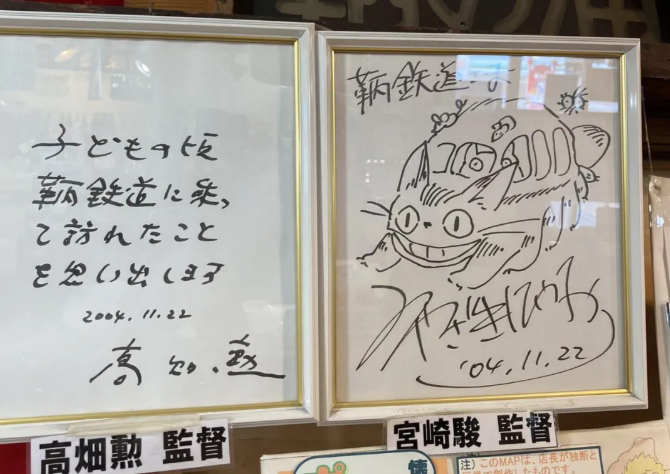 子どもの頃
鞆鉄道に乗っ
て訪れたこと
を思い出します
2004.11.22
高畑勲
高畑勲 監督
鞆鉄道
'04.11.22
宮崎駿 監督
注）このMAPは、店長が独断と